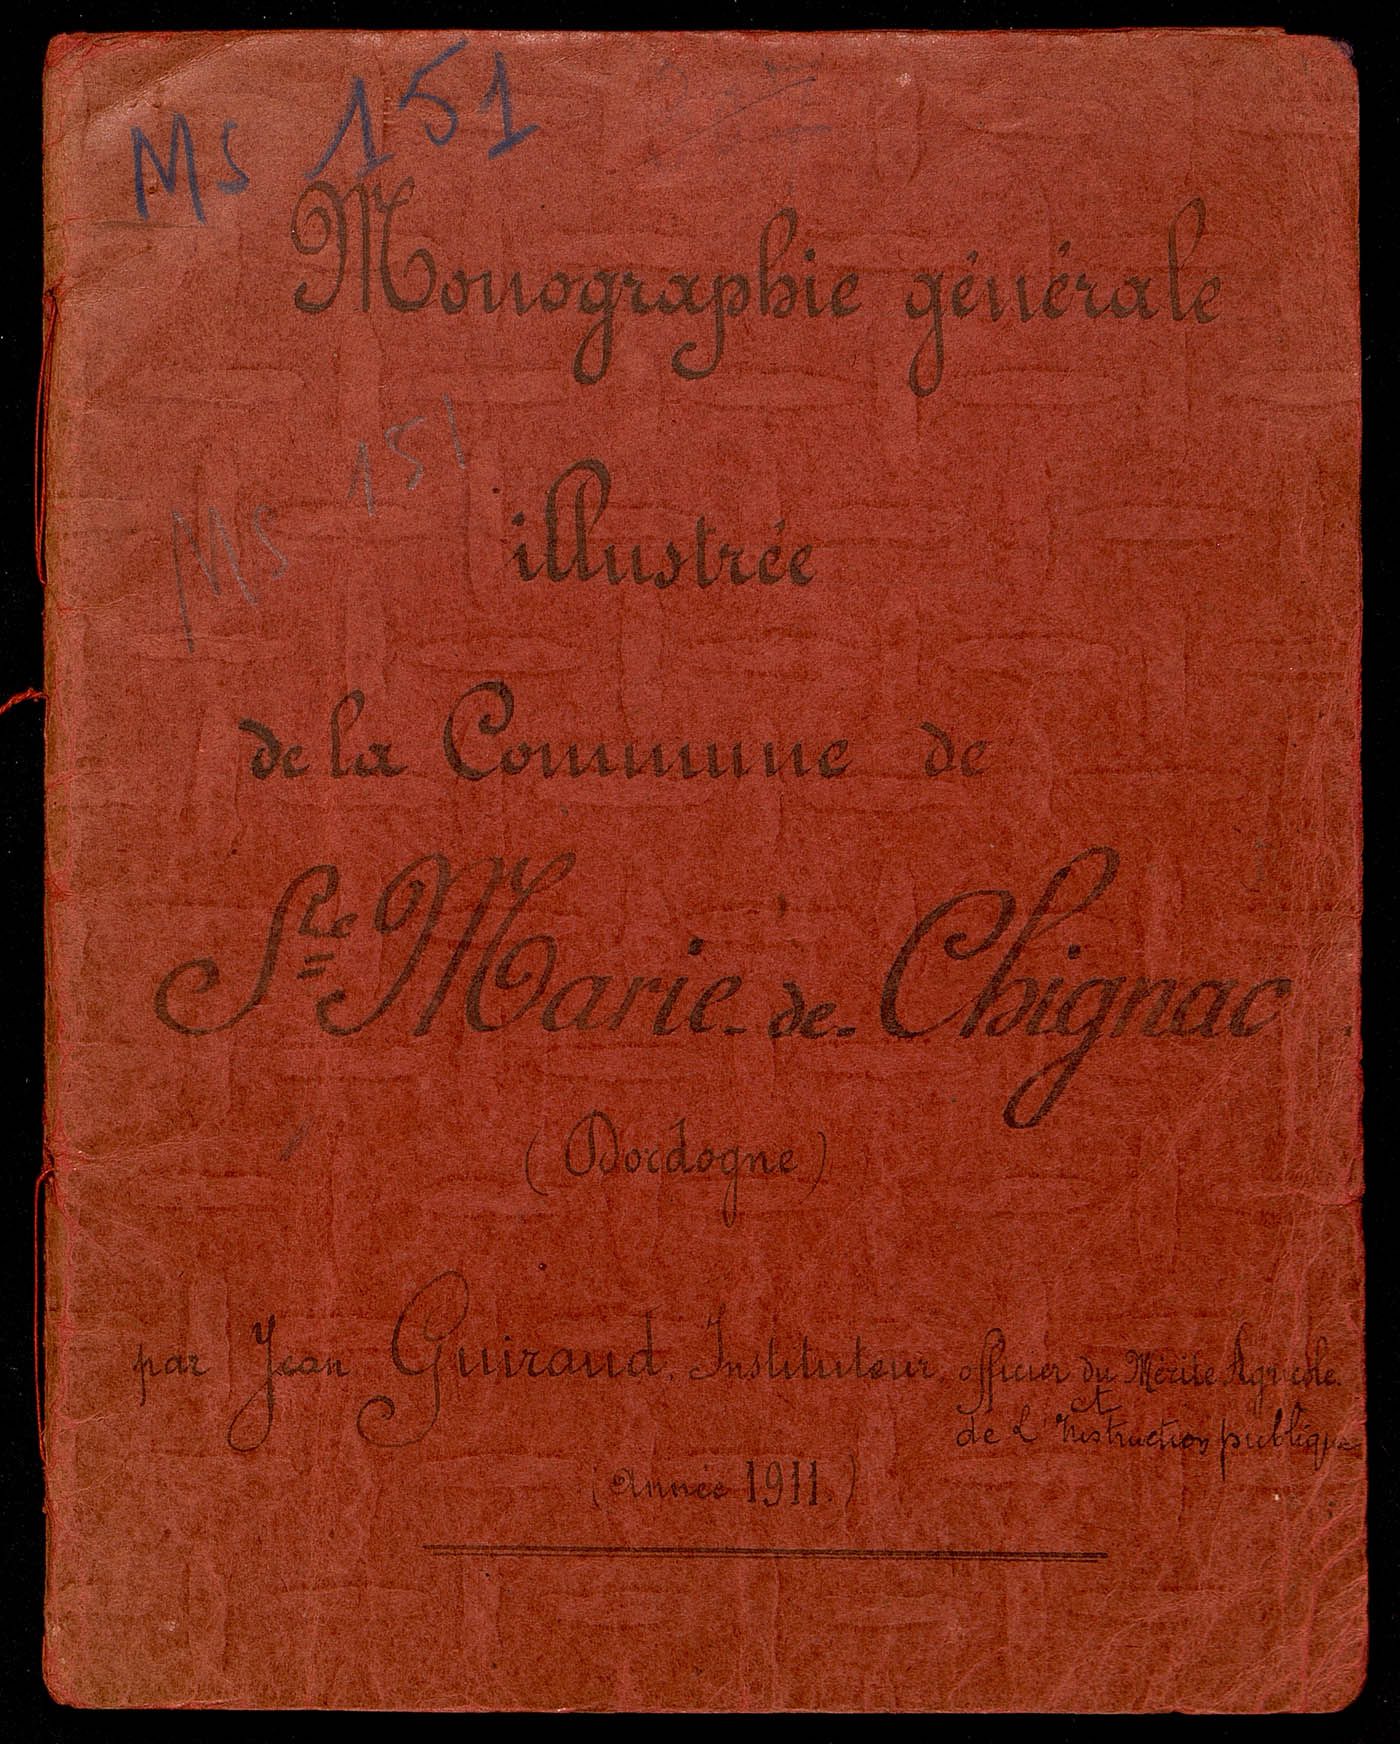 MS 151
Monographie générale
MS 151
illustrée
de la Commune de
Ste Marie-de-Chignac
(Dordogne)
par Jean Guiraud, Instituteur, officier du Mérite Agricole.
et
de L'Instruction publique
(Année 1911.)